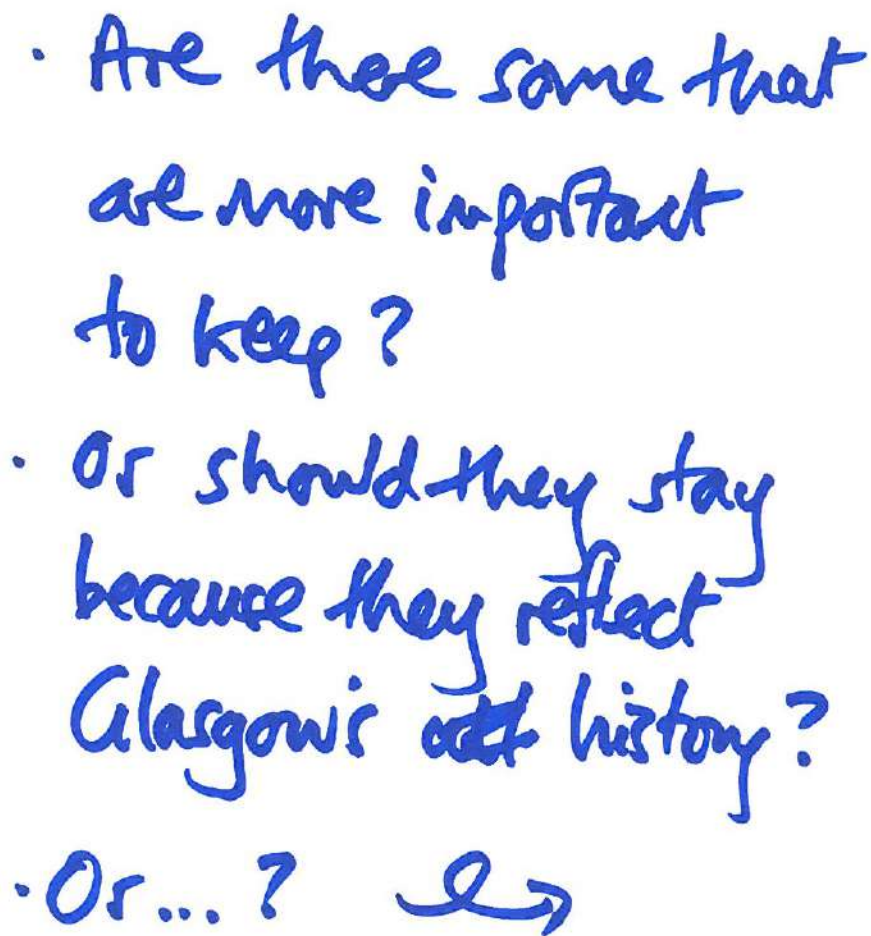 · Are there some that
are more important
to keep?
· Or should they stay
because they reflect
Glasgow's history?
· Or...?